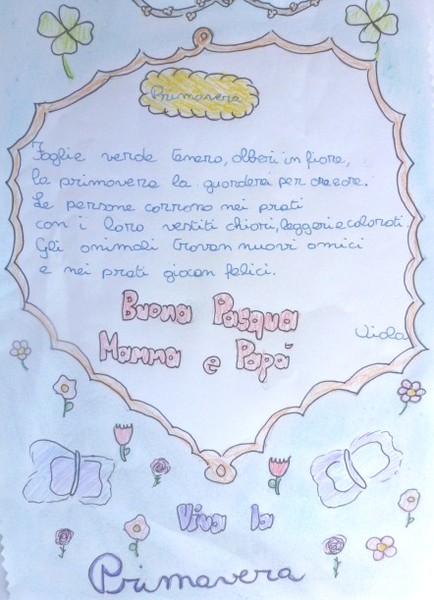 Primavera
Foglie verde tenero, alberi in fiore,
la primavera la guarderei per ore ore.
Le persone corrono nei prati
con i loro vestiti chiari, leggeri e colorati.
Gli animali trovan nuovi amici
e nei prati giocan felici.
Buona Pasqua
Mamma e Papà
Viola
Viva la
Primavera